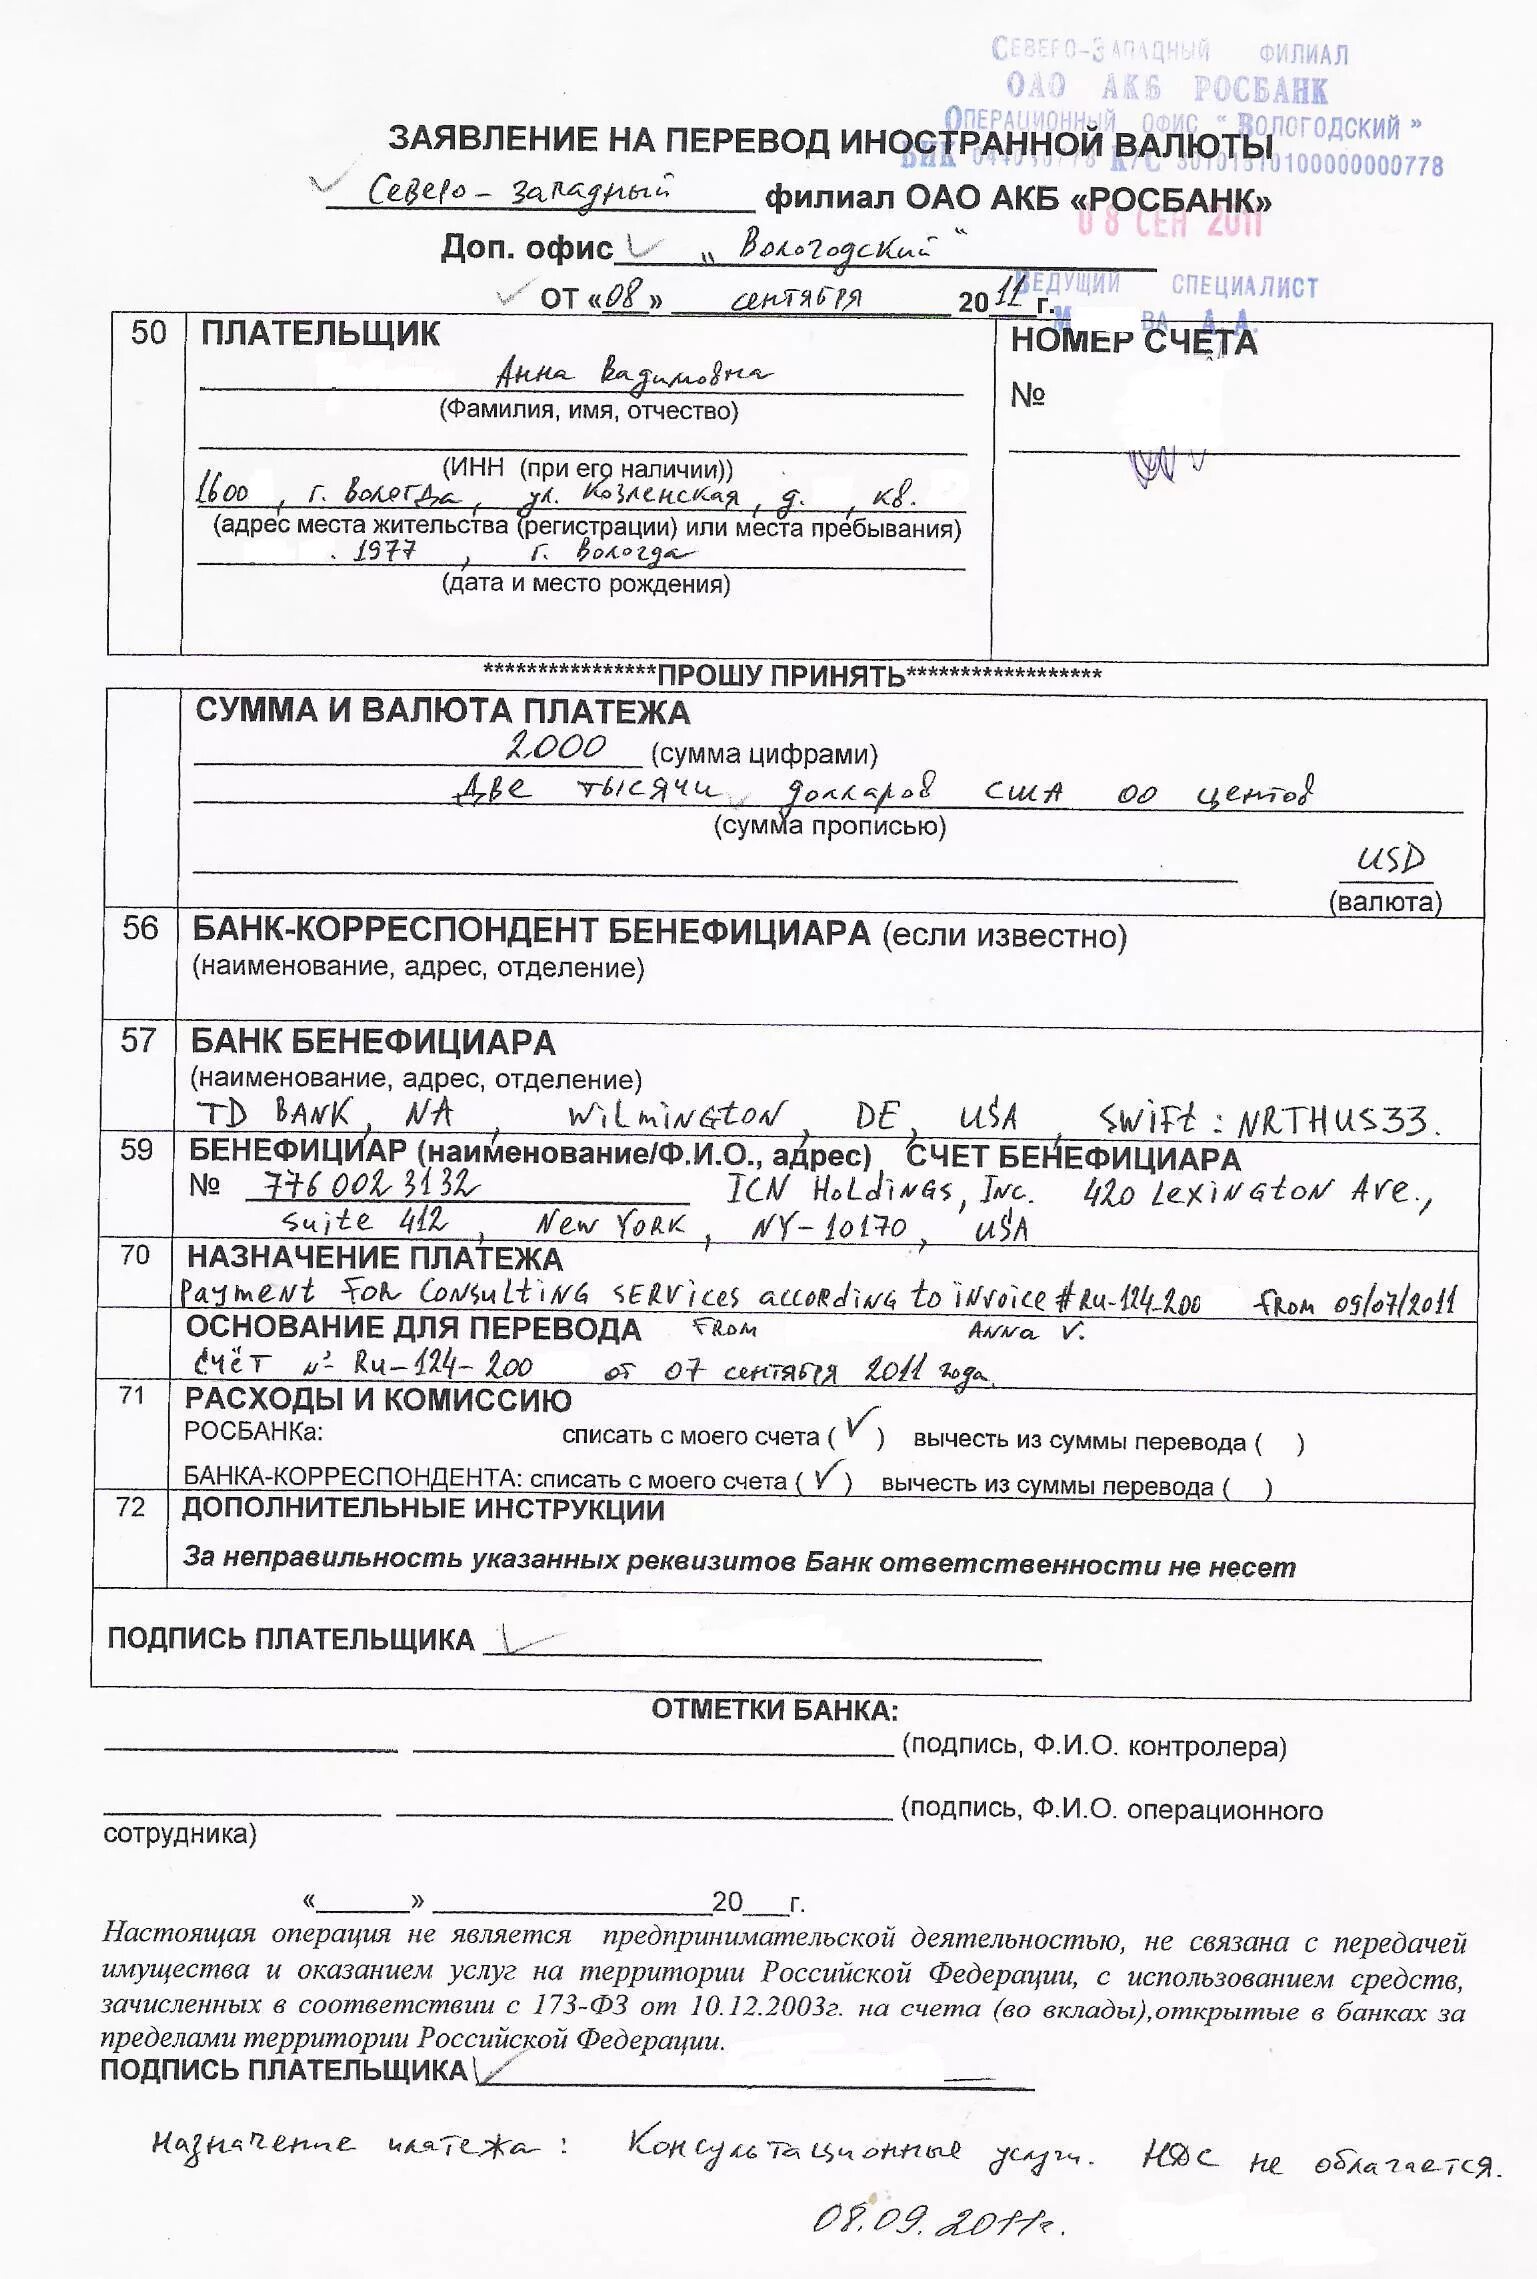 СЕВЕРО-ЗАПАДНЫЙ ФИЛИАЛ
ОАО АКБ РОСБАНК
ОПЕРАЦИОННЫЙ ОФИС "ВОЛОГОДСКИЙ"
ЗАЯВЛЕНИЕ НА ПЕРЕВОД ИНОСТРАННОЙ ВАЛЮТЫ
БИК К/С
Северо-Западный филиал ОАО АКБ «РОСБАНК»
08 СЕН 2011
Доп. офис „Вологодский“
ВЕДУЩИЙ СПЕЦИАЛИСТ
ОТ «08» сентября 2011 г.
М ВА А.А.
50 ПЛАТЕЛЬЩИК НОМЕР СЧЕТА
Анна Вадимовна
№
(Фамилия, имя, отчество)
(ИНН (при его наличии))
1600 , г. Вологда, ул. Козленская, д. , кв.
(адрес места жительства (регистрации) или места пребывания)
. 1977 , г. Вологда
(дата и место рождения)
****************ПРОШУ ПРИНЯТЬ******************
СУММА И ВАЛЮТА ПЛАТЕЖА
2000 (сумма цифрами)
Две тысячи долларов США 00 центов
(сумма прописью)
USD
(валюта)
56 БАНК-КОРРЕСПОНДЕНТ БЕНЕФИЦИАРА (если известно)
(наименование, адрес, отделение)
57 БАНК БЕНЕФИЦИАРА
(наименование, адрес, отделение)
TD BANK, NA , WILMINGTON, DE, USA , SWIFT: NRTHUS33.
59 БЕНЕФИЦИАР (наименование/Ф.И.О., адрес) СЧЕТ БЕНЕФИЦИАРА
№ 7760023132 ICN Holdings, Inc. 420 Lexington Ave.,
Suite 412 , New York , NY-10170 , USA
70 НАЗНАЧЕНИЕ ПЛАТЕЖА
Payment for consulting services according to invoice #Ru-124-200 from 09/07/2011
ОСНОВАНИЕ ДЛЯ ПЕРЕВОДА from Anna V.
Счёт № Ru-124-200 от 07 сентября 2011 года.
71 РАСХОДЫ И КОМИССИЮ
РОСБАНКа: списать с моего счета ( ✓ ) вычесть из суммы перевода ( )
БАНКА-КОРРЕСПОНДЕНТА: списать с моего счета ( ✓ ) вычесть из суммы перевода ( )
72 ДОПОЛНИТЕЛЬНЫЕ ИНСТРУКЦИИ
За неправильность указанных реквизитов Банк ответственности не несет
ПОДПИСЬ ПЛАТЕЛЬЩИКА
ОТМЕТКИ БАНКА:
(подпись, Ф.И.О. контролера)
(подпись, Ф.И.О. операционного
сотрудника)
«______» __________________20___г.
Настоящая операция не является предпринимательской деятельностью, не связана с передачей
имущества и оказанием услуг на территории Российской Федерации, с использованием средств,
зачисленных в соответствии с 173-ФЗ от 10.12.2003г. на счета (во вклады),открытые в банках за
пределами территории Российской Федерации.
ПОДПИСЬ ПЛАТЕЛЬЩИКА
Назначение платежа: Консультационные услуги. НДС не облагается.
08.09.2011г.